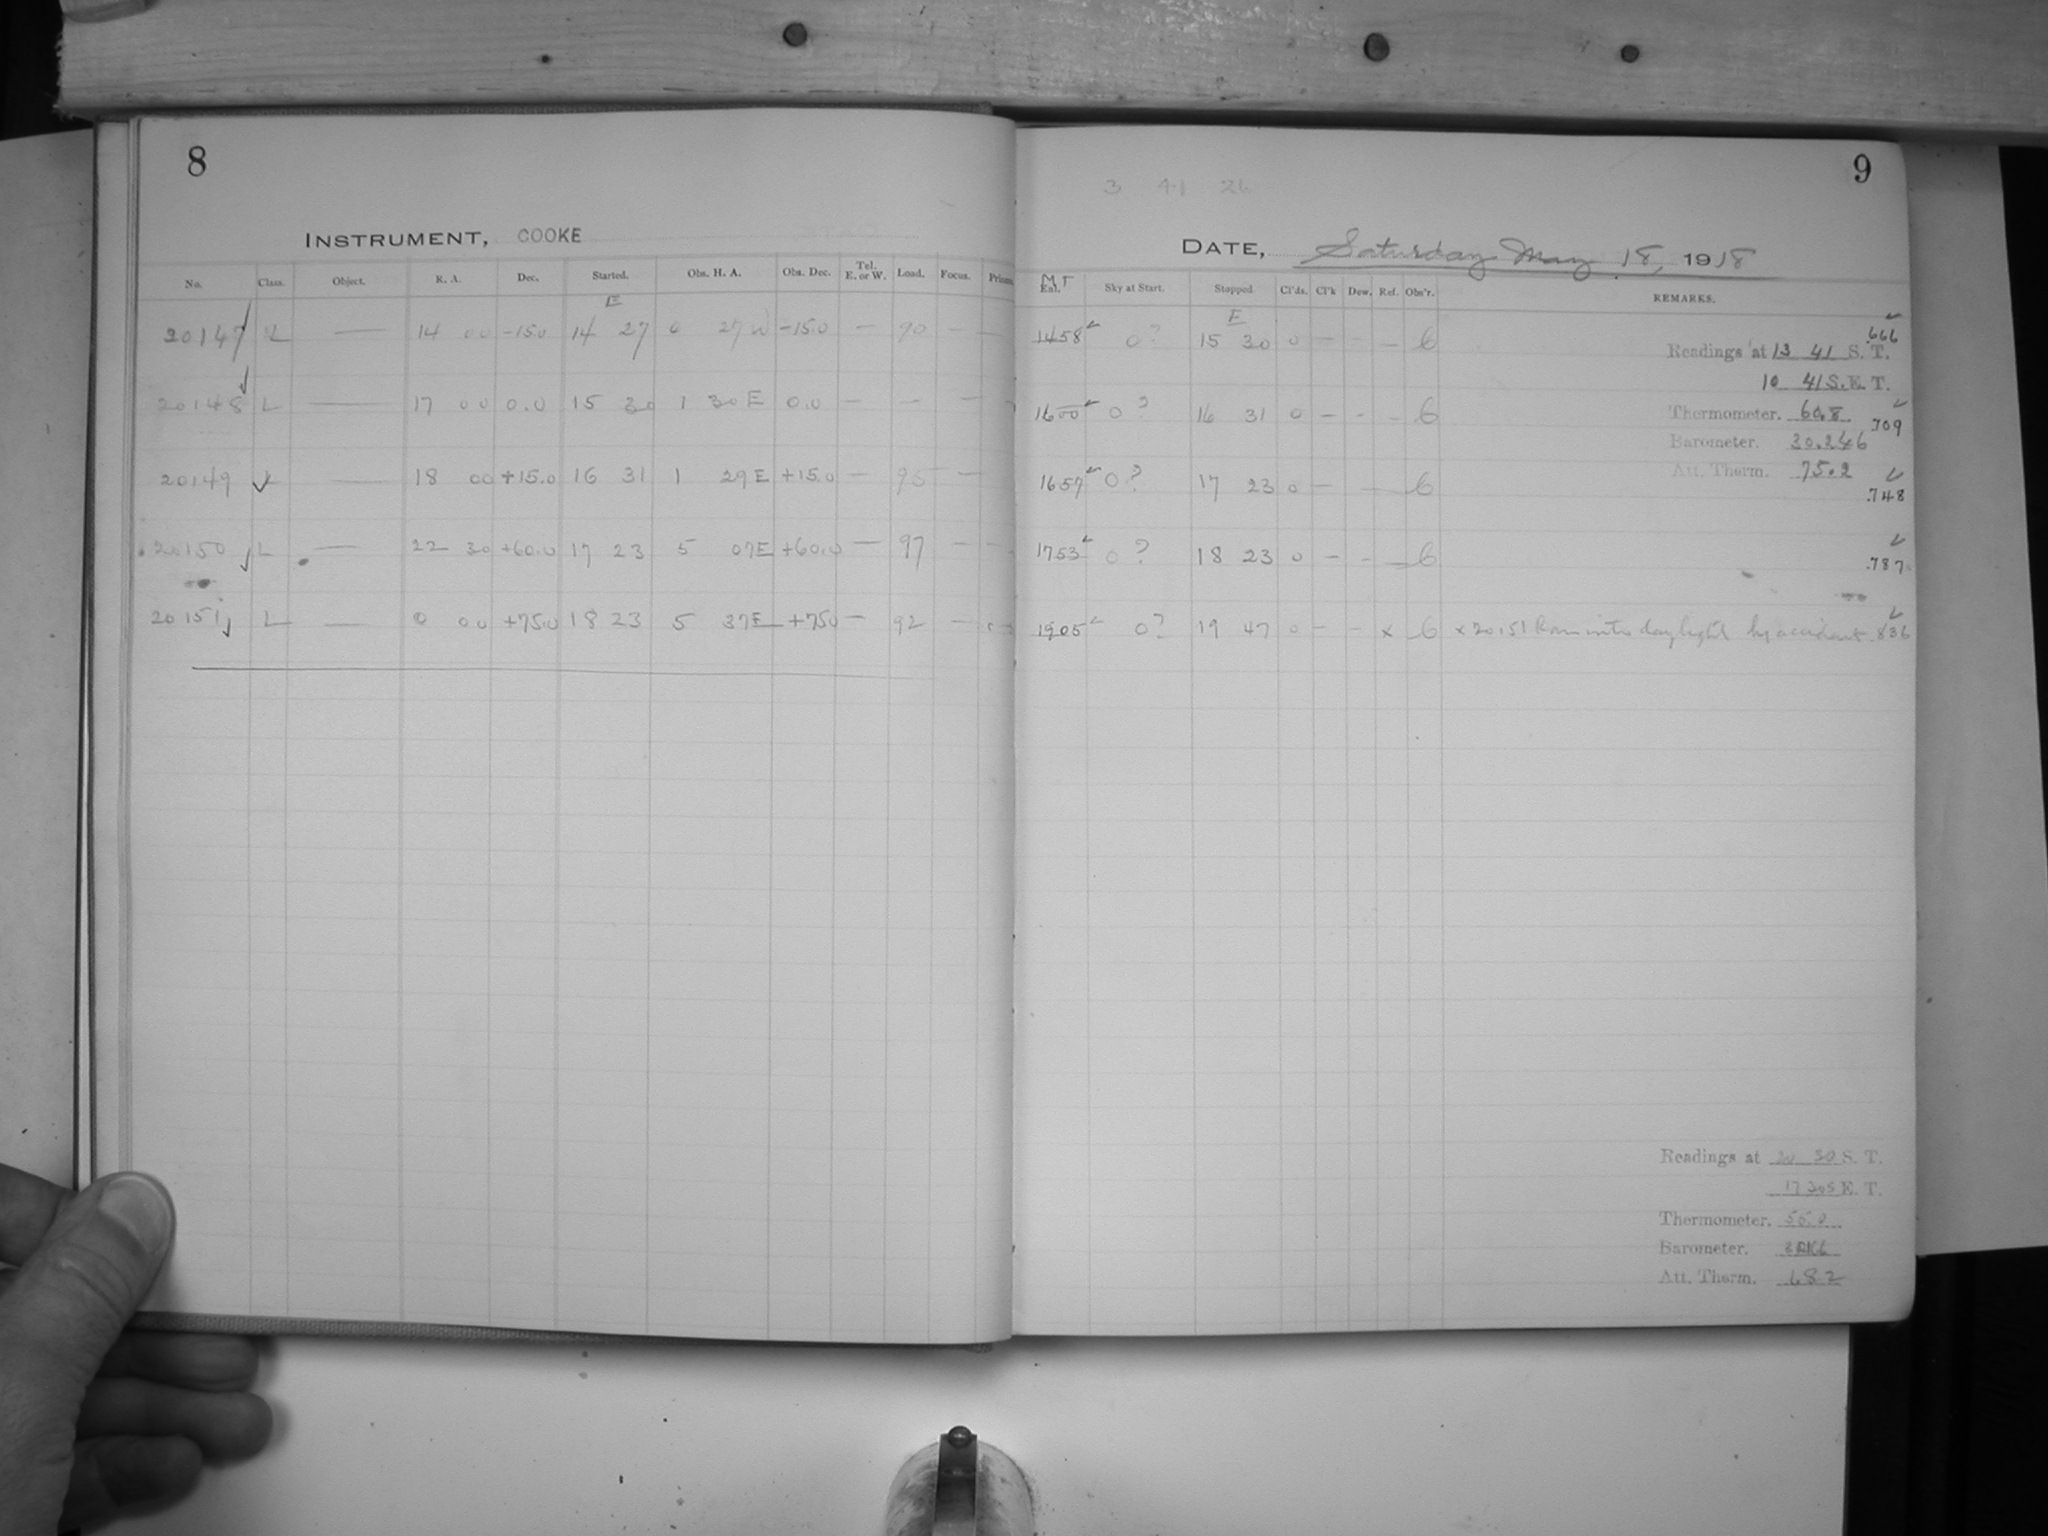 8
INSTRUMENT, COOKE
No. Class. Object. R. A. Dec. Started. Obs. H. A. Obs. Dec. Tel. E. or W. Load. Focus. Prism.
E
20147 L — 14 00 -15.0 14 27 0 27 W -15.0 — 90 — —
20148 L — 17 00 0.0 15 30 1 30 E 0.0 — — — —
20149 L — 18 00 +15.0 16 31 1 29 E +15.0 — 95 —
20150 L — 22 30 +60.0 17 23 5 07 E +60.0 — 97 — —
20151 L — 0 00 +75.0 18 23 5 37 E +75.0 — 92 —
9
3 41 26
DATE, Saturday May 18, 1918
M T
Ext. Sky at Start. Stopped Cl'ds. Cl'k Dew. Ref. Obs'r. REMARKS.
E
1458 0? 15 30 0 — - — 6 .666
Readings at 13 41 S. T.
10 41 S. E. T.
1600 0? 16 31 0 — - - 6 Thermometer. 60.8 .709
Barometer. 30.246
Att. Therm. 75.2
1657 0? 17 23 0 — — 6 .748
1753 0? 18 23 0 — - — 6 .787
1905 0? 19 47 0 — - x 6 x 20151 Ran into daylight by accident .836
Readings at 20 30 S. T.
17 20 S E. T.
Thermometer.
Barometer.
Att. Therm. 68.2